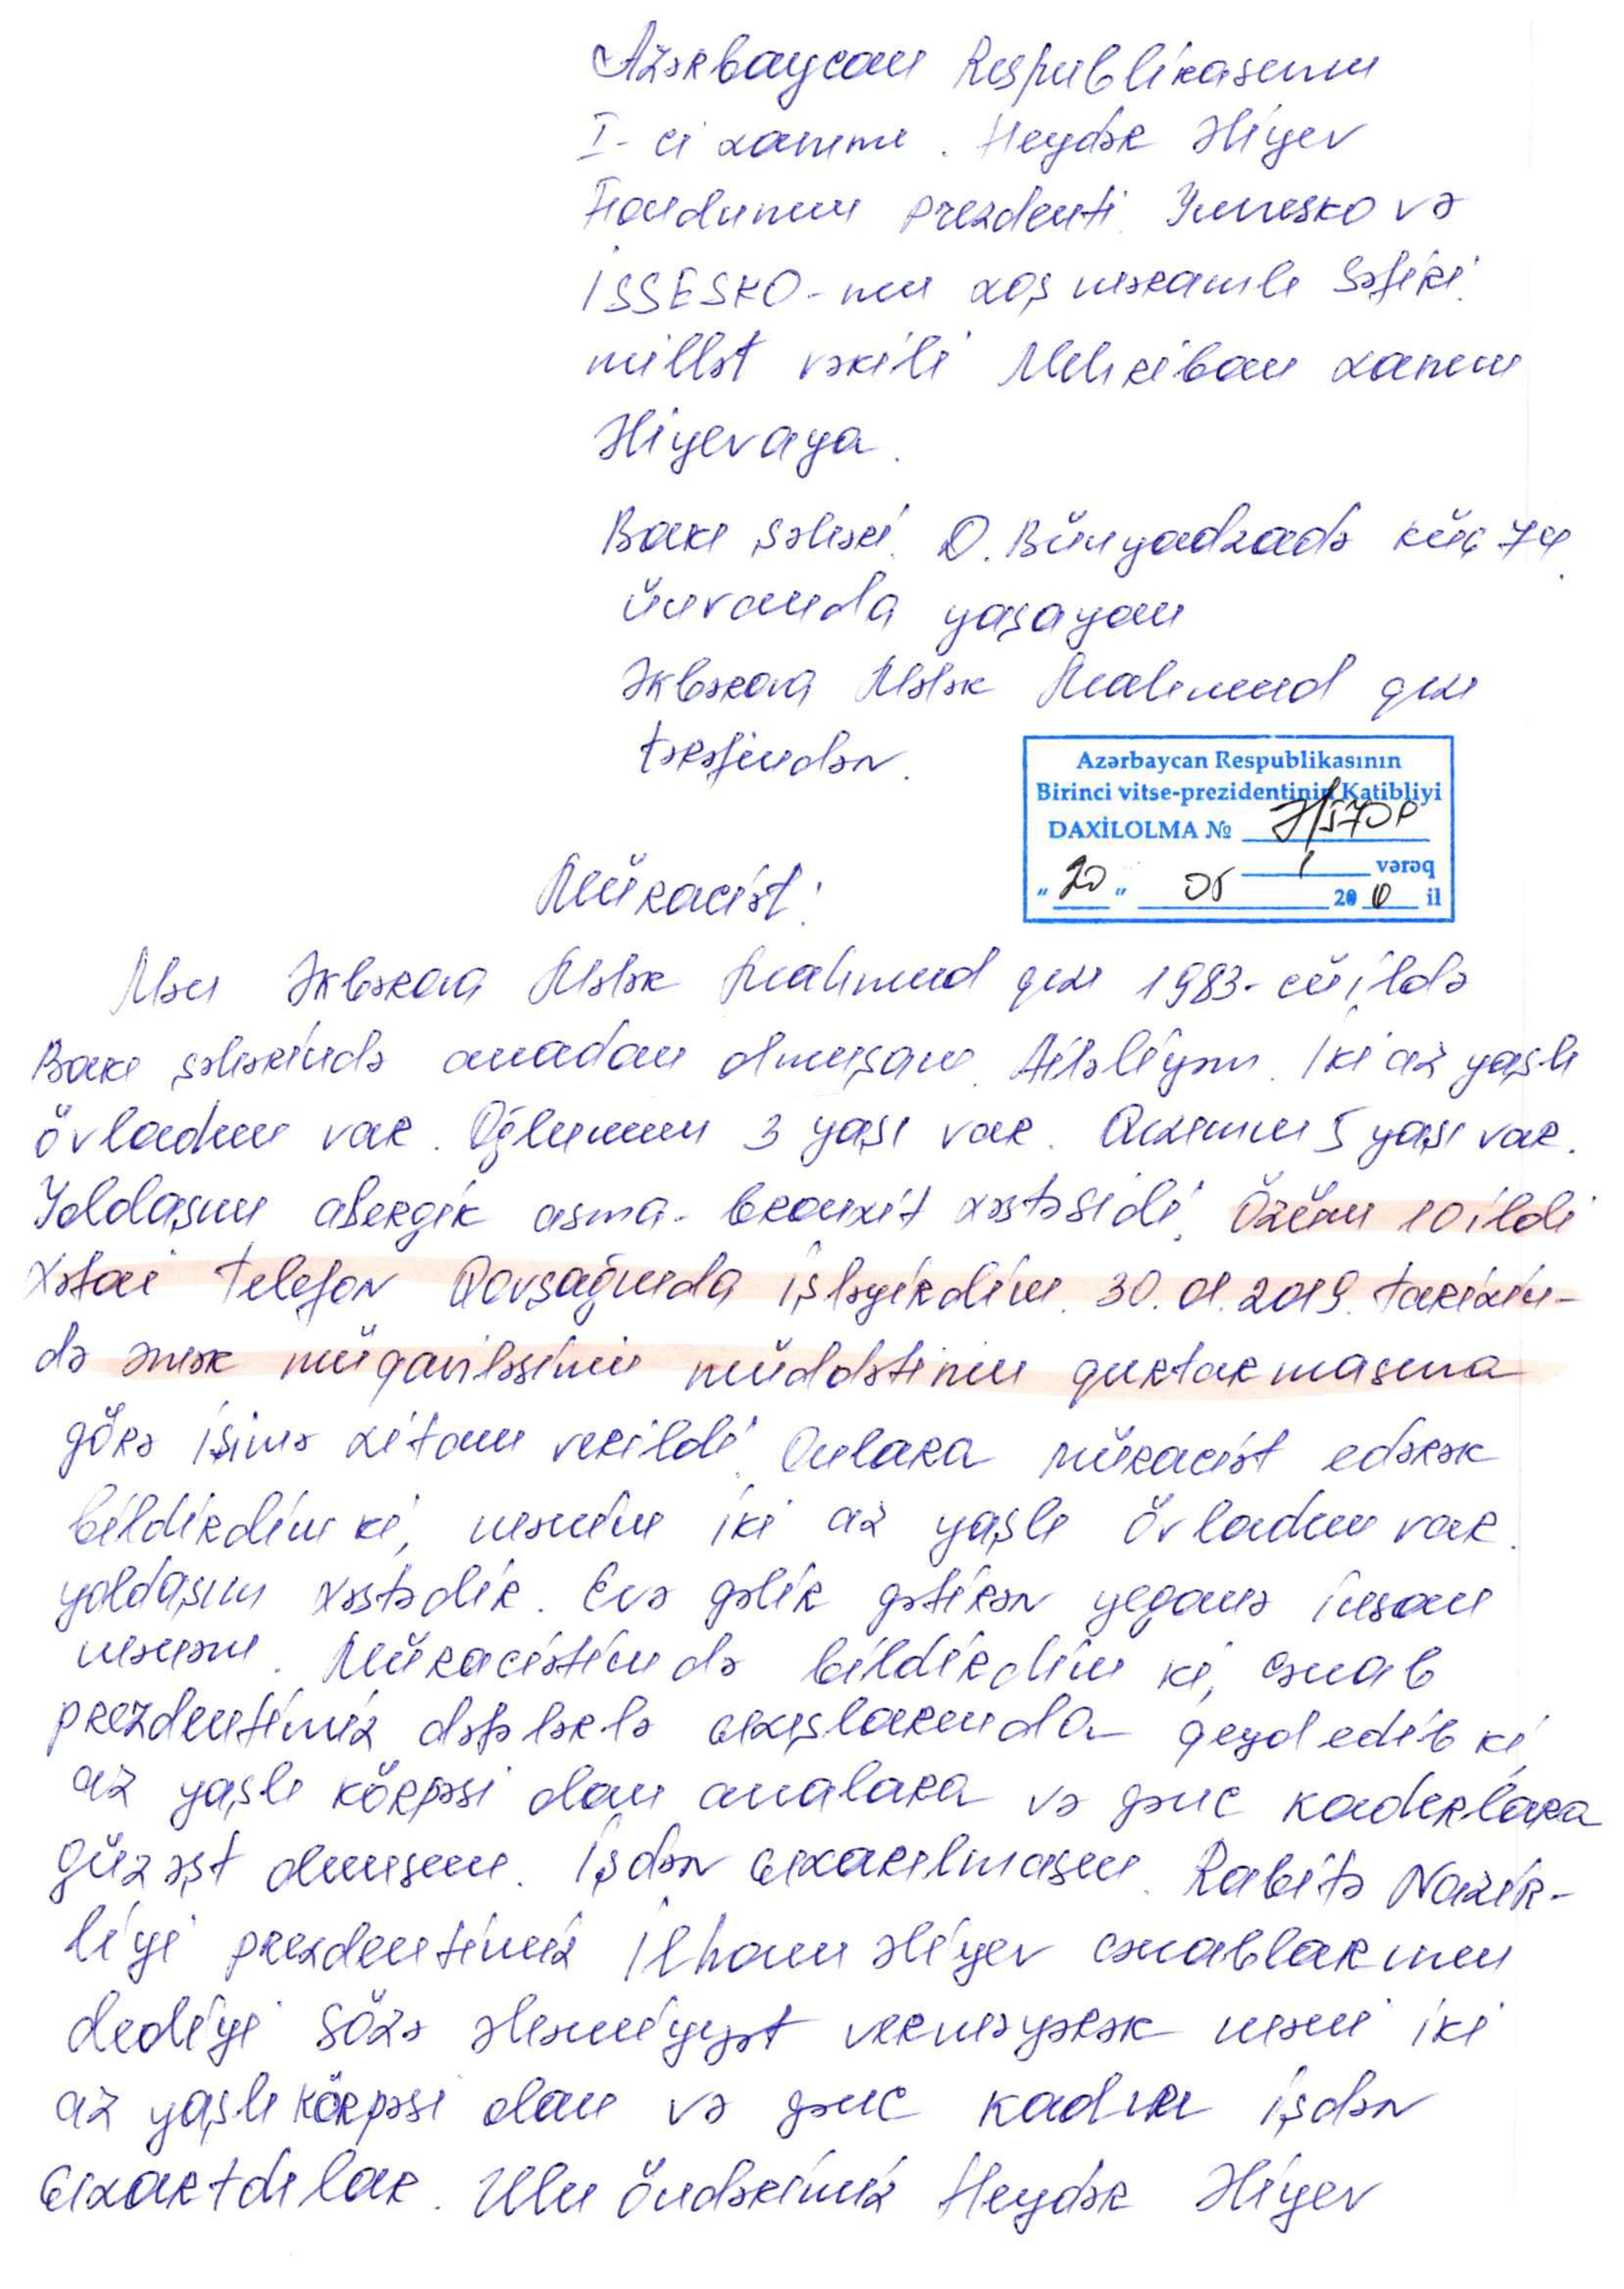 Azərbaycan Respublikasının
I-ci xanımı. Heydər Əliyev
Fondunun prezdenti. Yunesko və
İSSESKO-nun xoş məramlı Səfiri.
millət vəkili Mehriban xanım
Əliyevaya.
Bakı şəhəri. D. Bünyadzadə küç 74.
ünvanda yaşayan
Əkbərova Mələk Mahmud qızı
tərəfindən.
Azərbaycan Respublikasının
Birinci vitse-prezidentinin Katibliyi
DAXİLOLMA №
vərəq
"20" 05 20 il
Müraciət:
Mən Əkbərova Mələk Mahmud qızı 1983-cü ildə
Bakı şəhərində anadan olmuşam. Ailəliyəm. İki az yaşlı
övladım var. Oğlumun 3 yaşı var. Qızımın 5 yaşı var.
Yoldaşım alergik asma-bronxit xəstəsidi. Özüm 10 ildi
Xətai Telefon Qovşağında işləyirdim. 30.01.2019. tarixin-
də əmək müqaviləsinin müddətinin qurtarmasına
görə işimə xitam verildi. Onlara müraciət edərək
bildirdim ki, mənim iki az yaşlı övladım var.
yoldaşım xəstədir. Evə gəlir gətirən yeganə insan
mənəm. Müraciətimdə bildirdim ki, cənab
prezdentimiz dəfələrlə çıxışlarında qeyd edib ki,
az yaşlı körpəsi olan analara və gənc kadrlara
güzəşt olunsun. İşdən çıxarılmasın. Rabitə Nazir-
liyi prezdentimiz İlham Əliyev cənablarının
dediyi sözə əhəmiyyət verməyərək məni iki
az yaşlı körpəsi olan və gənc kadrı işdən
çıxartdılar. Ulu öndərimiz Heydər Əliyev